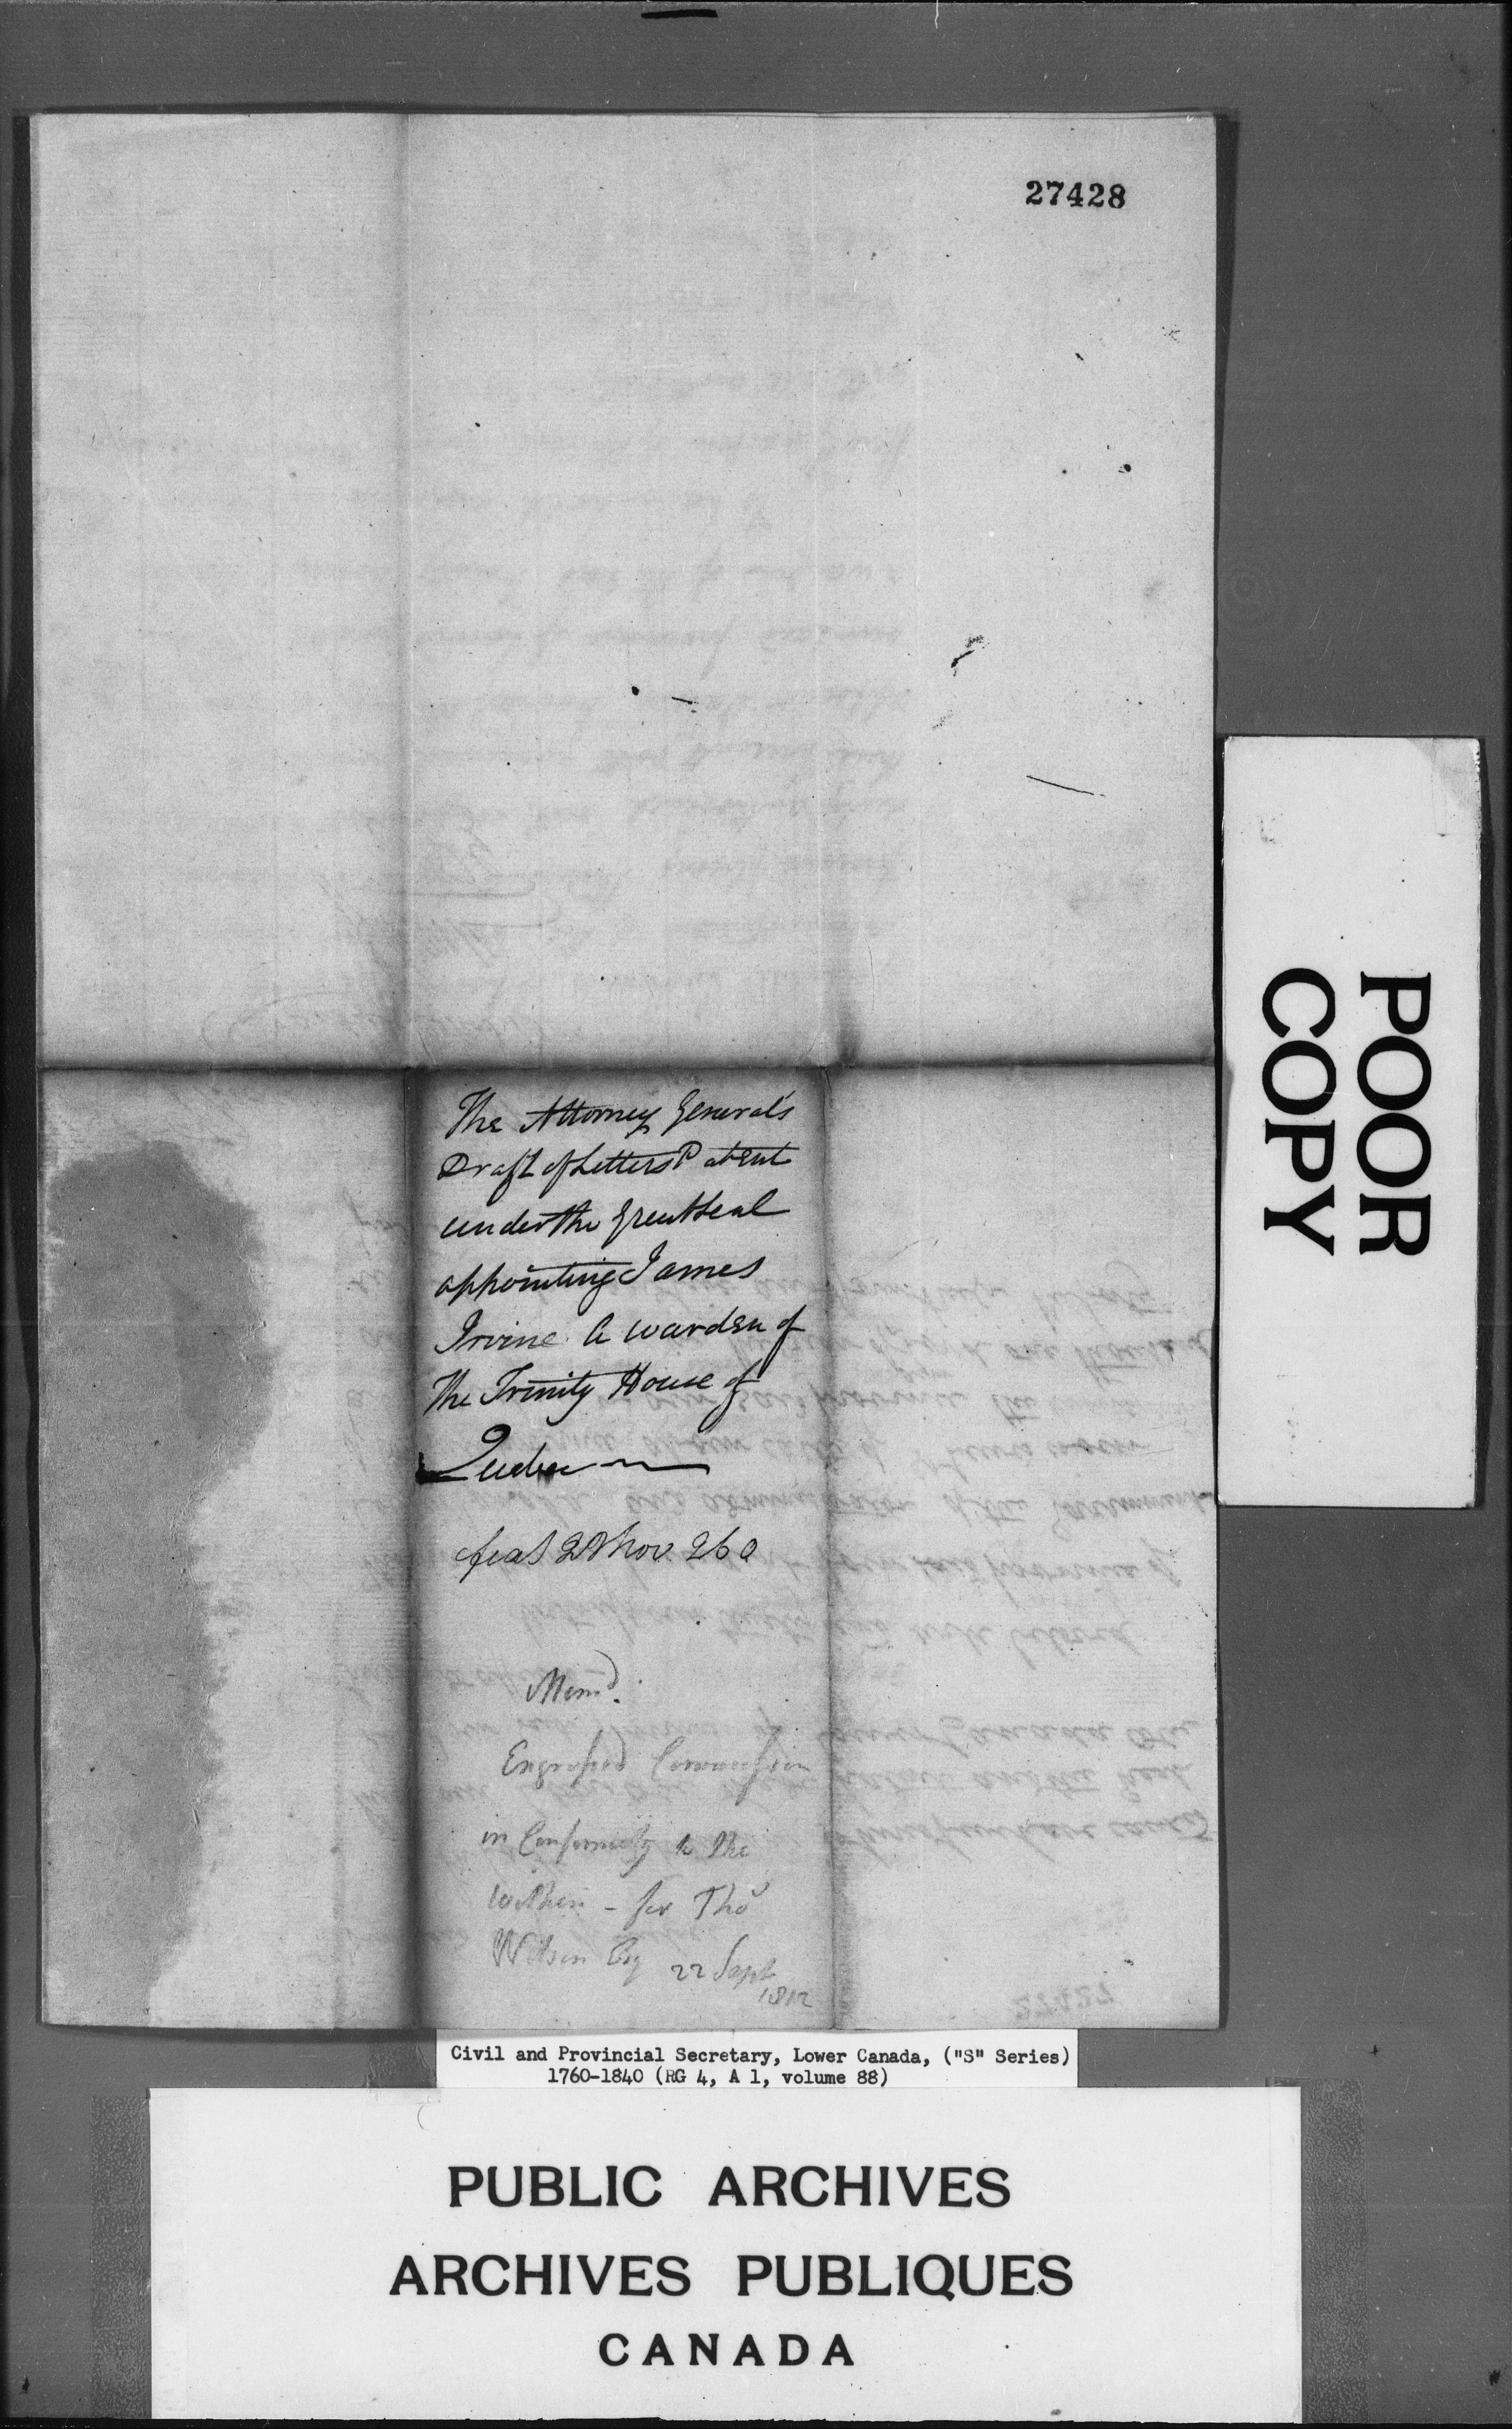 27428
The Attorney General's
Draft of Letters Patent
under the Great Seal
appointing James
Irvine a warden of
The Trinity House of
Quebec
feas 2 Nov. 260
Memd.
Engrossed Commission
in Conformity to the
within - for Thos
Wilson Esq 22 Sept
1812
POOR
COPY
Civil and Provincial Secretary, Lower Canada, ("S" Series)
1760-1840 (RG 4, A 1, volume 88)
PUBLIC ARCHIVES
ARCHIVES PUBLIQUES
CANADA